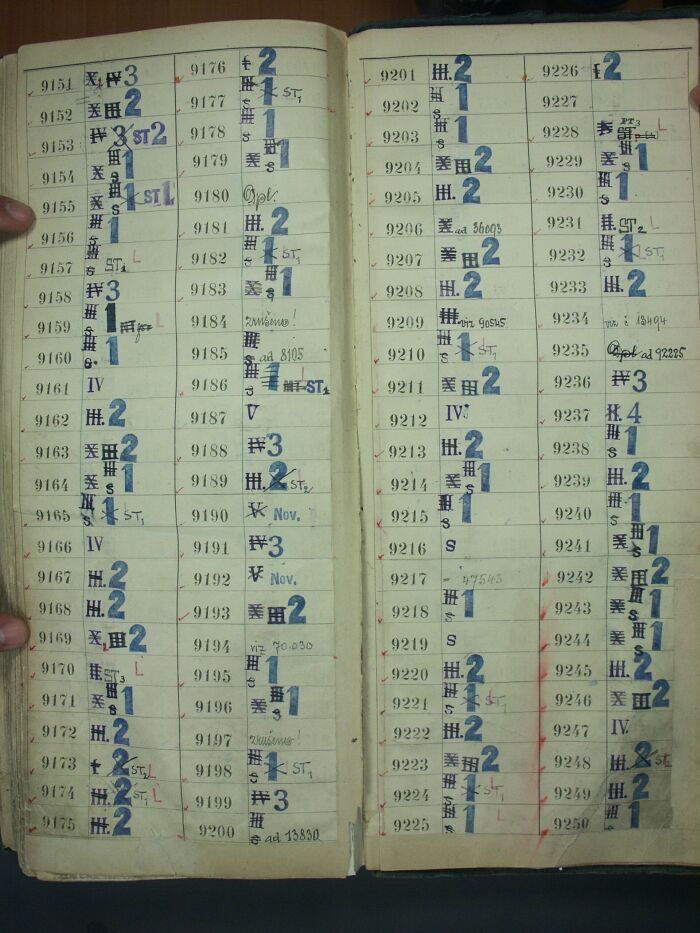 9151 X IV 3
9152 X III 2
9153 IV 3 ST 2
9154 X III S 1
9155 X III S 1 ST L
9156 III S 1
9157 III S ST1 L
9158 IV 3
9159 III S 1 L
9160 III S 1
9161 IV
9162 III. 2
9163 X III 2
9164 X III S 1
9165 III S 1 ST1
9166 IV
9167 III. 2
9168 III. 2
9169 X III 2
9170 II. ST3 L
9171 X III S 1
9172 III. 2
9173 I 2 ST2 L
9174 III. 2 ST1 L
9175 III. 2
9176 I 2
9177 III S 1 ST1
9178 III S 1
9179 X III S 1
9180 Opl.
9181 III. 2
9182 III S 1 ST1
9183 X III S 1
9184 zrušeno!
9185 III S ad 8105
9186 III S 1 ST1
9187 V
9188 IV 3
9189 III. 2 ST2 L
9190 V Nov.
9191 IV 3
9192 V Nov.
9193 X III 2
9194 viz 70.030
9195 III S 1
9196 X III S 1
9197 zrušeno!
9198 III S 1 ST1
9199 IV 3
9200 III S ad 13830
9201 III. 2
9202 III S 1
9203 III S 1
9204 X III 2
9205 III. 2
9206 X ad 36093
9207 X III 2
9208 III. 2
9209 III. viz 90545
9210 III S 1 ST1 L
9211 X III 2
9212 IV.
9213 III. 2
9214 X III S 1
9215 III S 1
9216 S
9217 47543
9218 III S 1
9219 S
9220 III. 2
9221 III S 1 ST1 L
9222 III. 2
9223 X III 2
9224 III S 1 ST1 L
9225 III S 1 L
9226 I 2
9227
9228 PT3 ST L
9229 X III S 1
9230 III S 1
9231 II. ST2 L
9232 III S 1 ST1 L
9233 III. 2
9234 viz č 13494
9235 Opl ad 92225
9236 IV 3
9237 II. 4
9238 III S 1
9239 III. 2
9240 III S 1
9241 X III S 1
9242 X III 2
9243 X III S 1
9244 X III S 1
9245 III. 2
9246 X III 2
9247 IV.
9248 III. 2 ST L
9249 III. 2
9250 III S 1